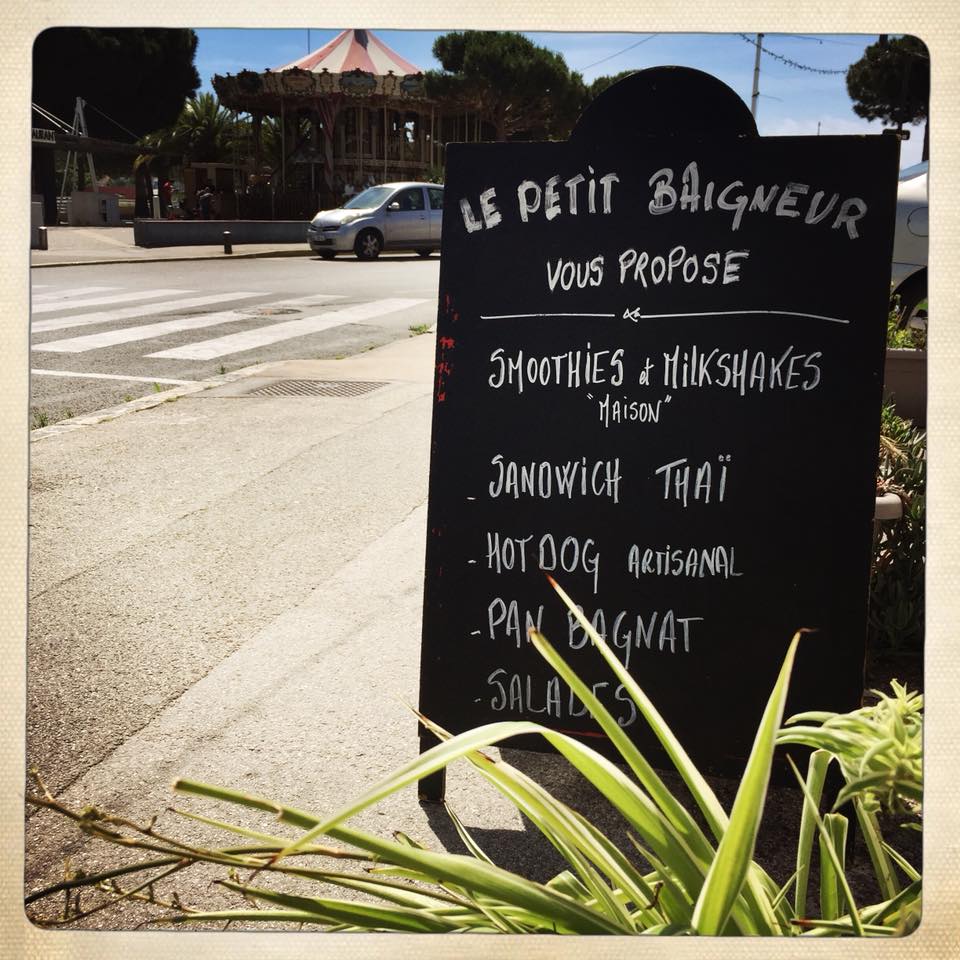 LE PETIT BAIGNEUR
VOUS PROPOSE
SMOOTHIES et MILKSHAKES
"MAISON"
- SANDWICH THAÏ
- HOT DOG ARTISANAL
- PAN BAGNAT
- SALADES